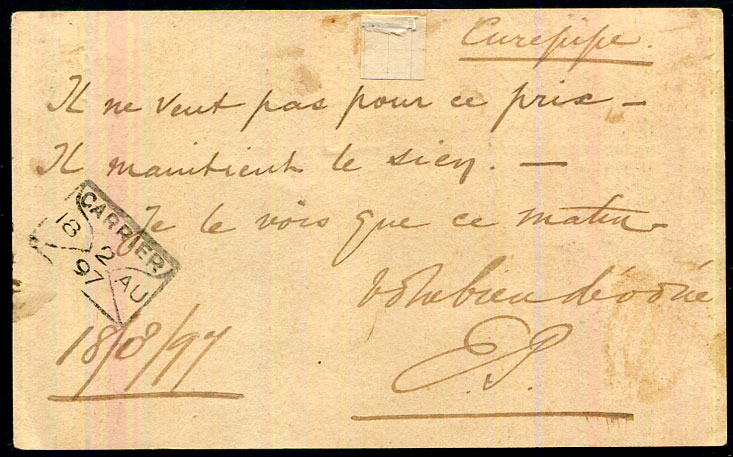 Curepipe.
Il ne veut pas pour ce prix —
Il maintient le sien. —
Je le vois que ce matin
CARRIER
18 2 AU
97
Votre bien dévoué
18/8/97
E.S.